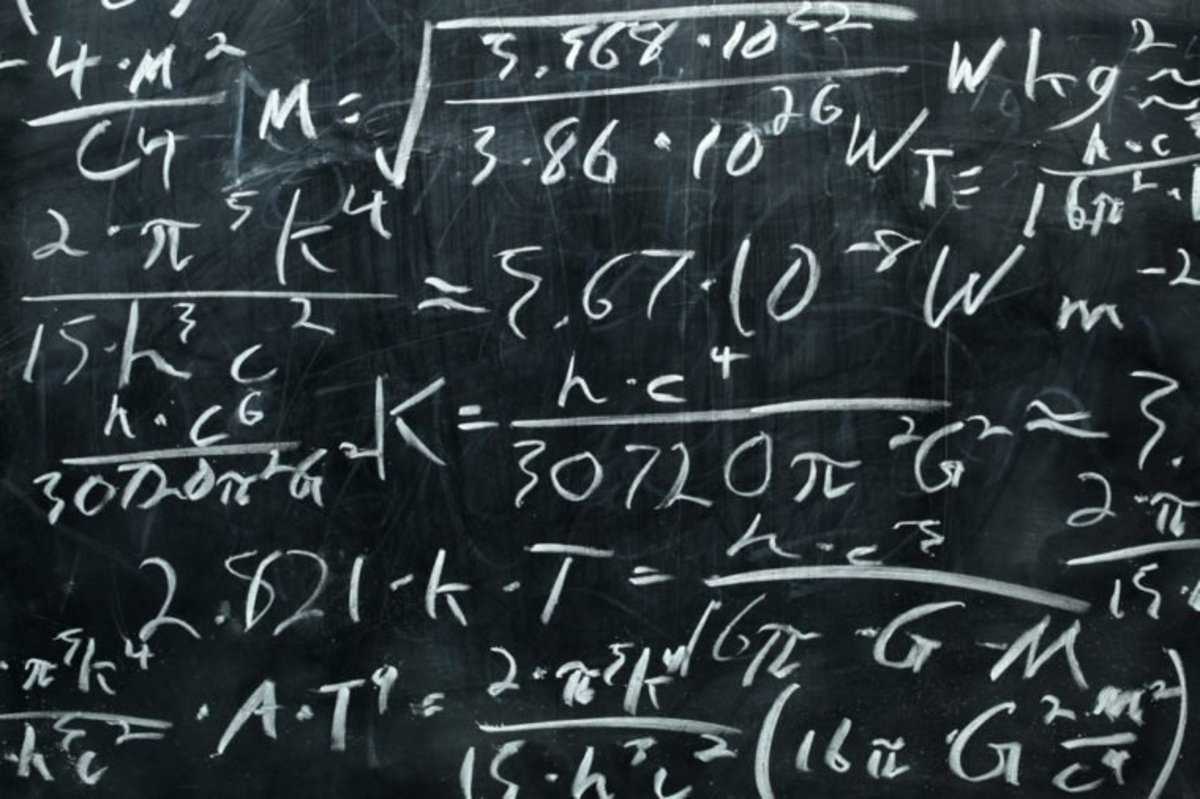 4·M² / C4 M = √(3.568·10³² / 3.86·10²⁶ W) W kg² ≈
T = h·c / 16π²·
2·π⁵k⁴ / 15·h³c² ≈ 5.67·10⁻⁸ W m⁻²
h·c⁶ / 30720π²G² K = h·c⁴ / 30720π²G² ≈ 3.
2.821·k·T = h·c³ / 16π·G·M 2·π / 15·
·π⁵k⁴ / h³c² ·A·T⁴ = 2·π⁵k⁴ / 15·h³c² (16π G² m² / c⁴)